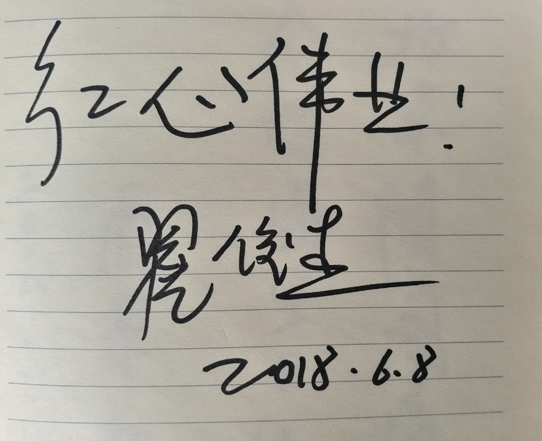 红心伟世！
翟俊杰
2018.6.8